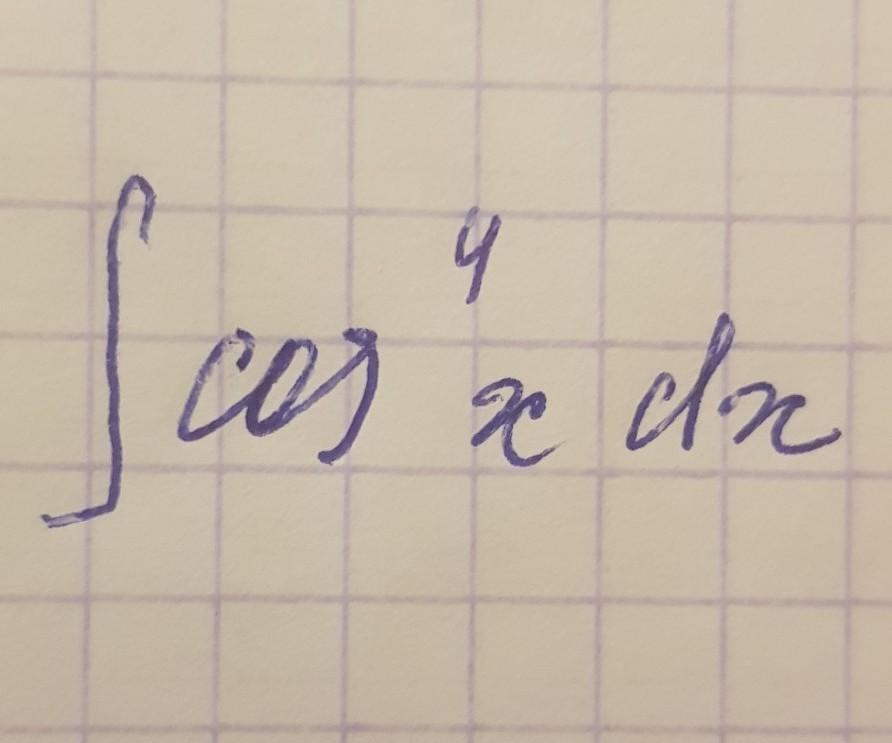 ∫ cos⁴ x dx